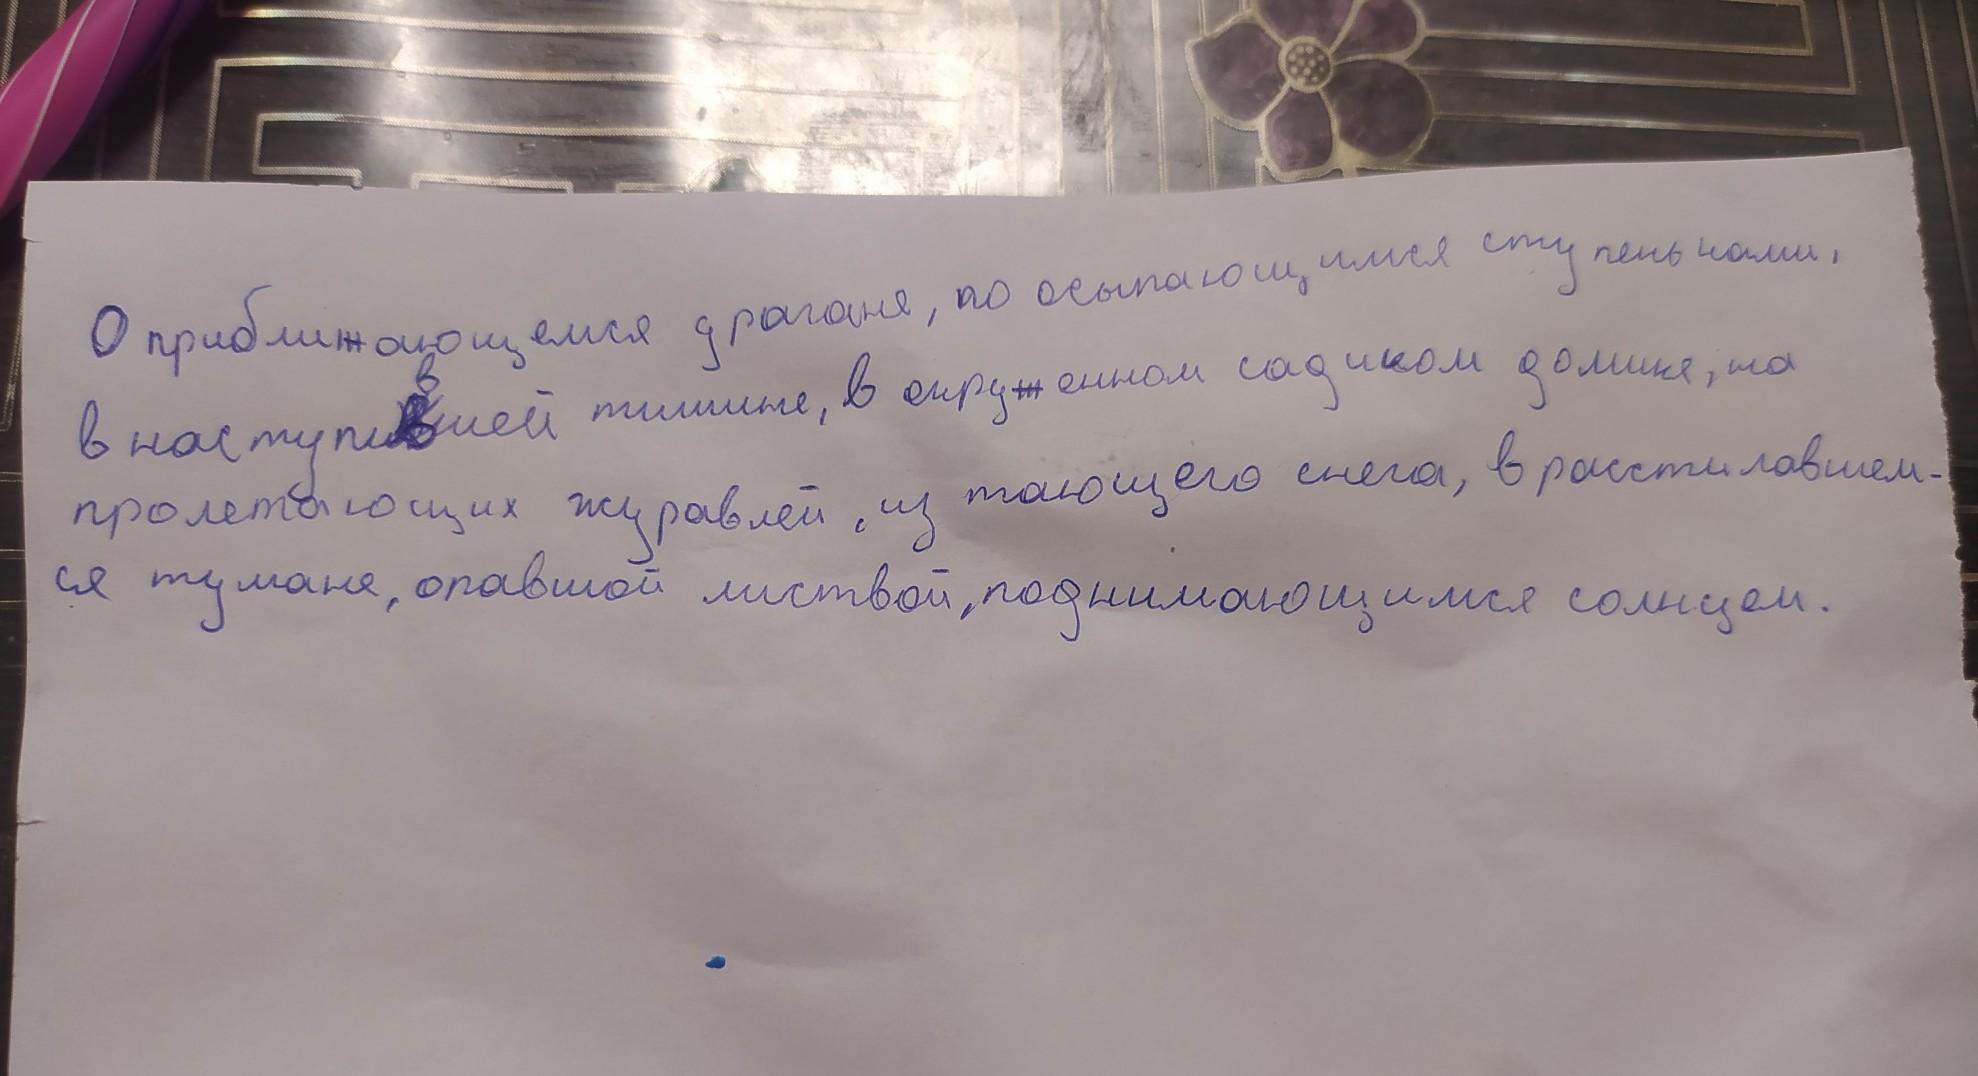 О приближающемся драгане, по осыпающимся ступеньками,
в наступившей тишине, в окруженном садиком домике, на
пролетающих журавлей, из тающего снега, в расстилавшем-
ся тумане, опавшой листвой, поднимающимся солнцем.